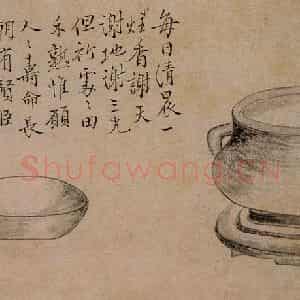 每日清晨一
炷香謝天
謝地謝三光
但祈處〻田
禾熟惟願
人〻壽命長
朝有賢臣
Shufawang.CN